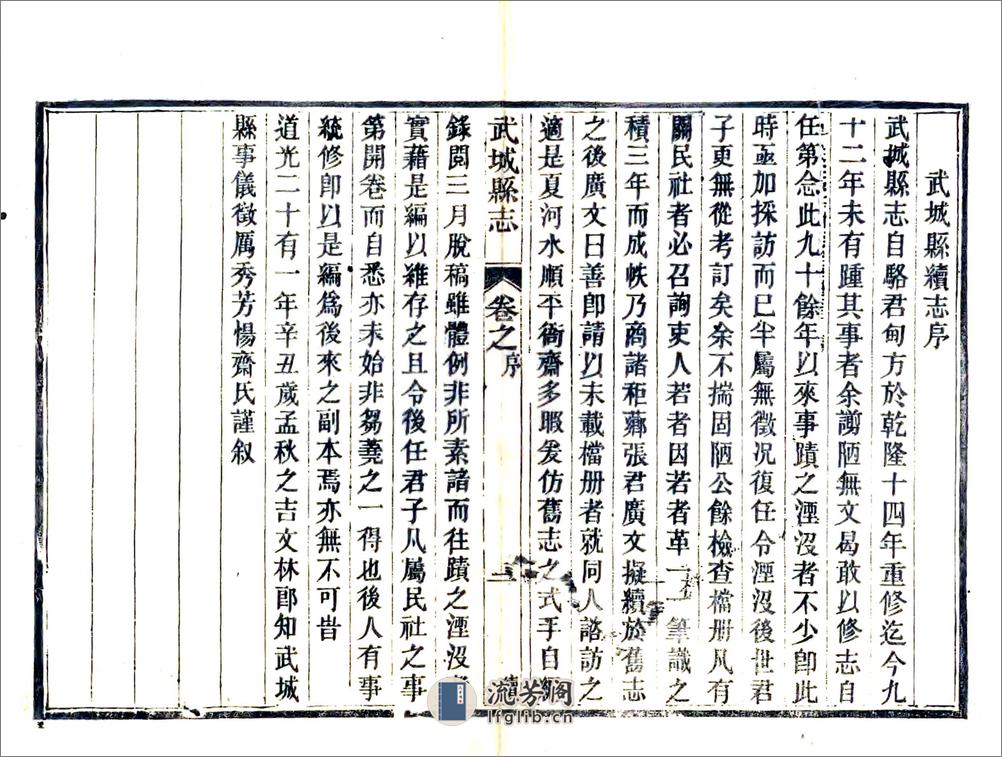 武城縣續志序
武城縣志自駱君甸方於乾隆十四年重修迄今九
十二年未有踵其事者余謭陋無文曷敢以修志自
任第念此九十餘年以來事蹟之湮沒者不少卽此
時亟加採訪而已半屬無徵況復任令湮沒後世君
子更無從考訂矣余不揣固陋公餘檢查檔册凡有
關民社者必召詢吏人若者因若者革一一筆識之
積三年而成帙乃商諸秬薌張君廣文擬續於舊志
之後廣文曰善卽請以未載檔册者就同人諮訪之
適是夏河水順平衙齋多暇爰仿舊志之式手自
武城縣志
卷之
序
續
錄閱三月脫稿雖體例非所素諳而往蹟之湮沒
實藉是編以維存之且令後任君子凡屬民社之事
第開卷而自悉亦未始非芻蕘之一得也後人有事
統修卽以是編爲後來之副本焉亦無不可旹
道光二十有一年辛丑歲孟秋之吉文林郎知武城
縣事儀徵厲秀芳惕齋氏謹叙
流芳閣
lfglib.cn